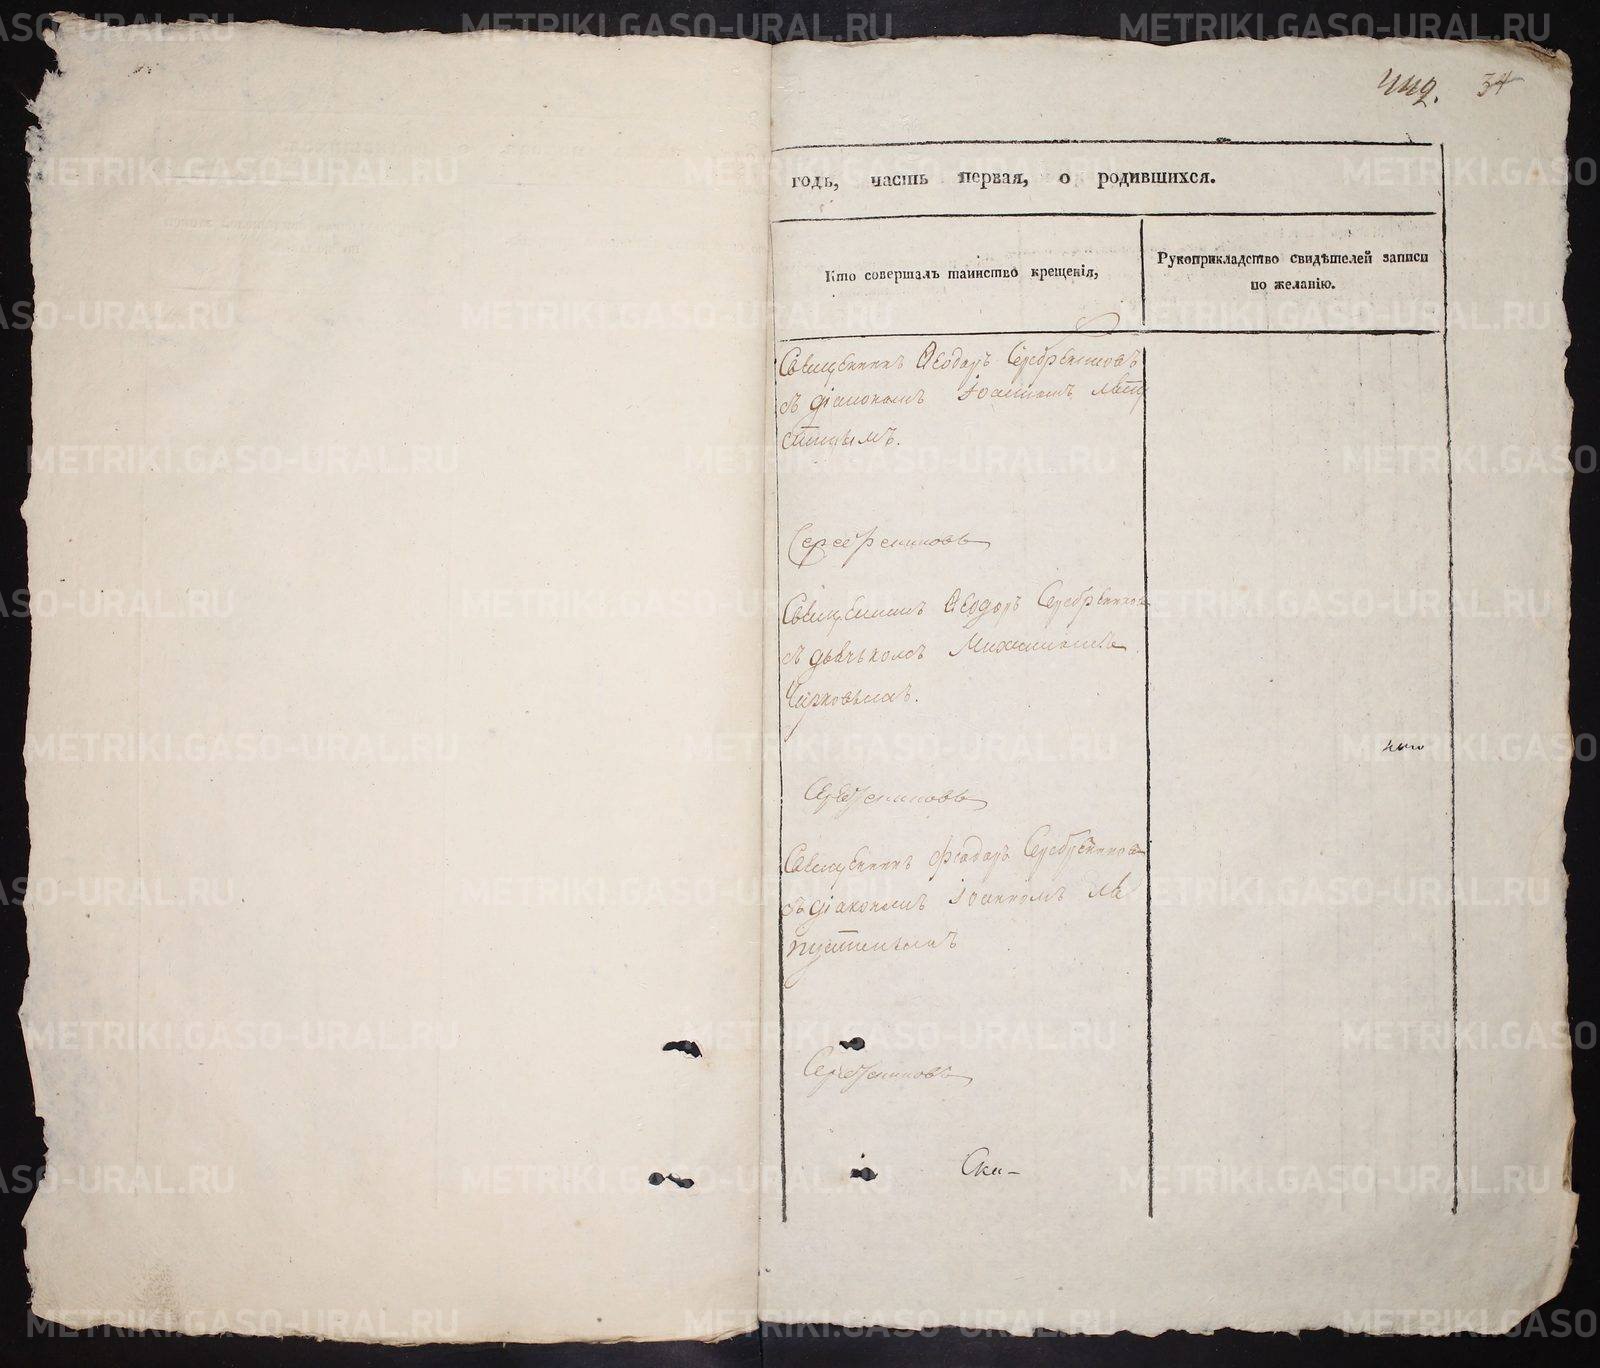 442. 34
годъ, часть первая, о родившихся.
Кто совершалъ таинство крещенія,
Рукоприкладство свидѣтелей записи
по желанію.
Священникъ Ѳеодоръ Серебрениковъ
съ діакономъ Іоанномъ
Серебрениковъ
Священникъ Ѳеодоръ Серебрениковъ
съ дьячькомъ Михаиломъ
Чирковымъ.
Серебрениковъ
Священникъ Феодоръ Серебрениковъ
съ діакономъ Іоанномъ
Серебрениковъ